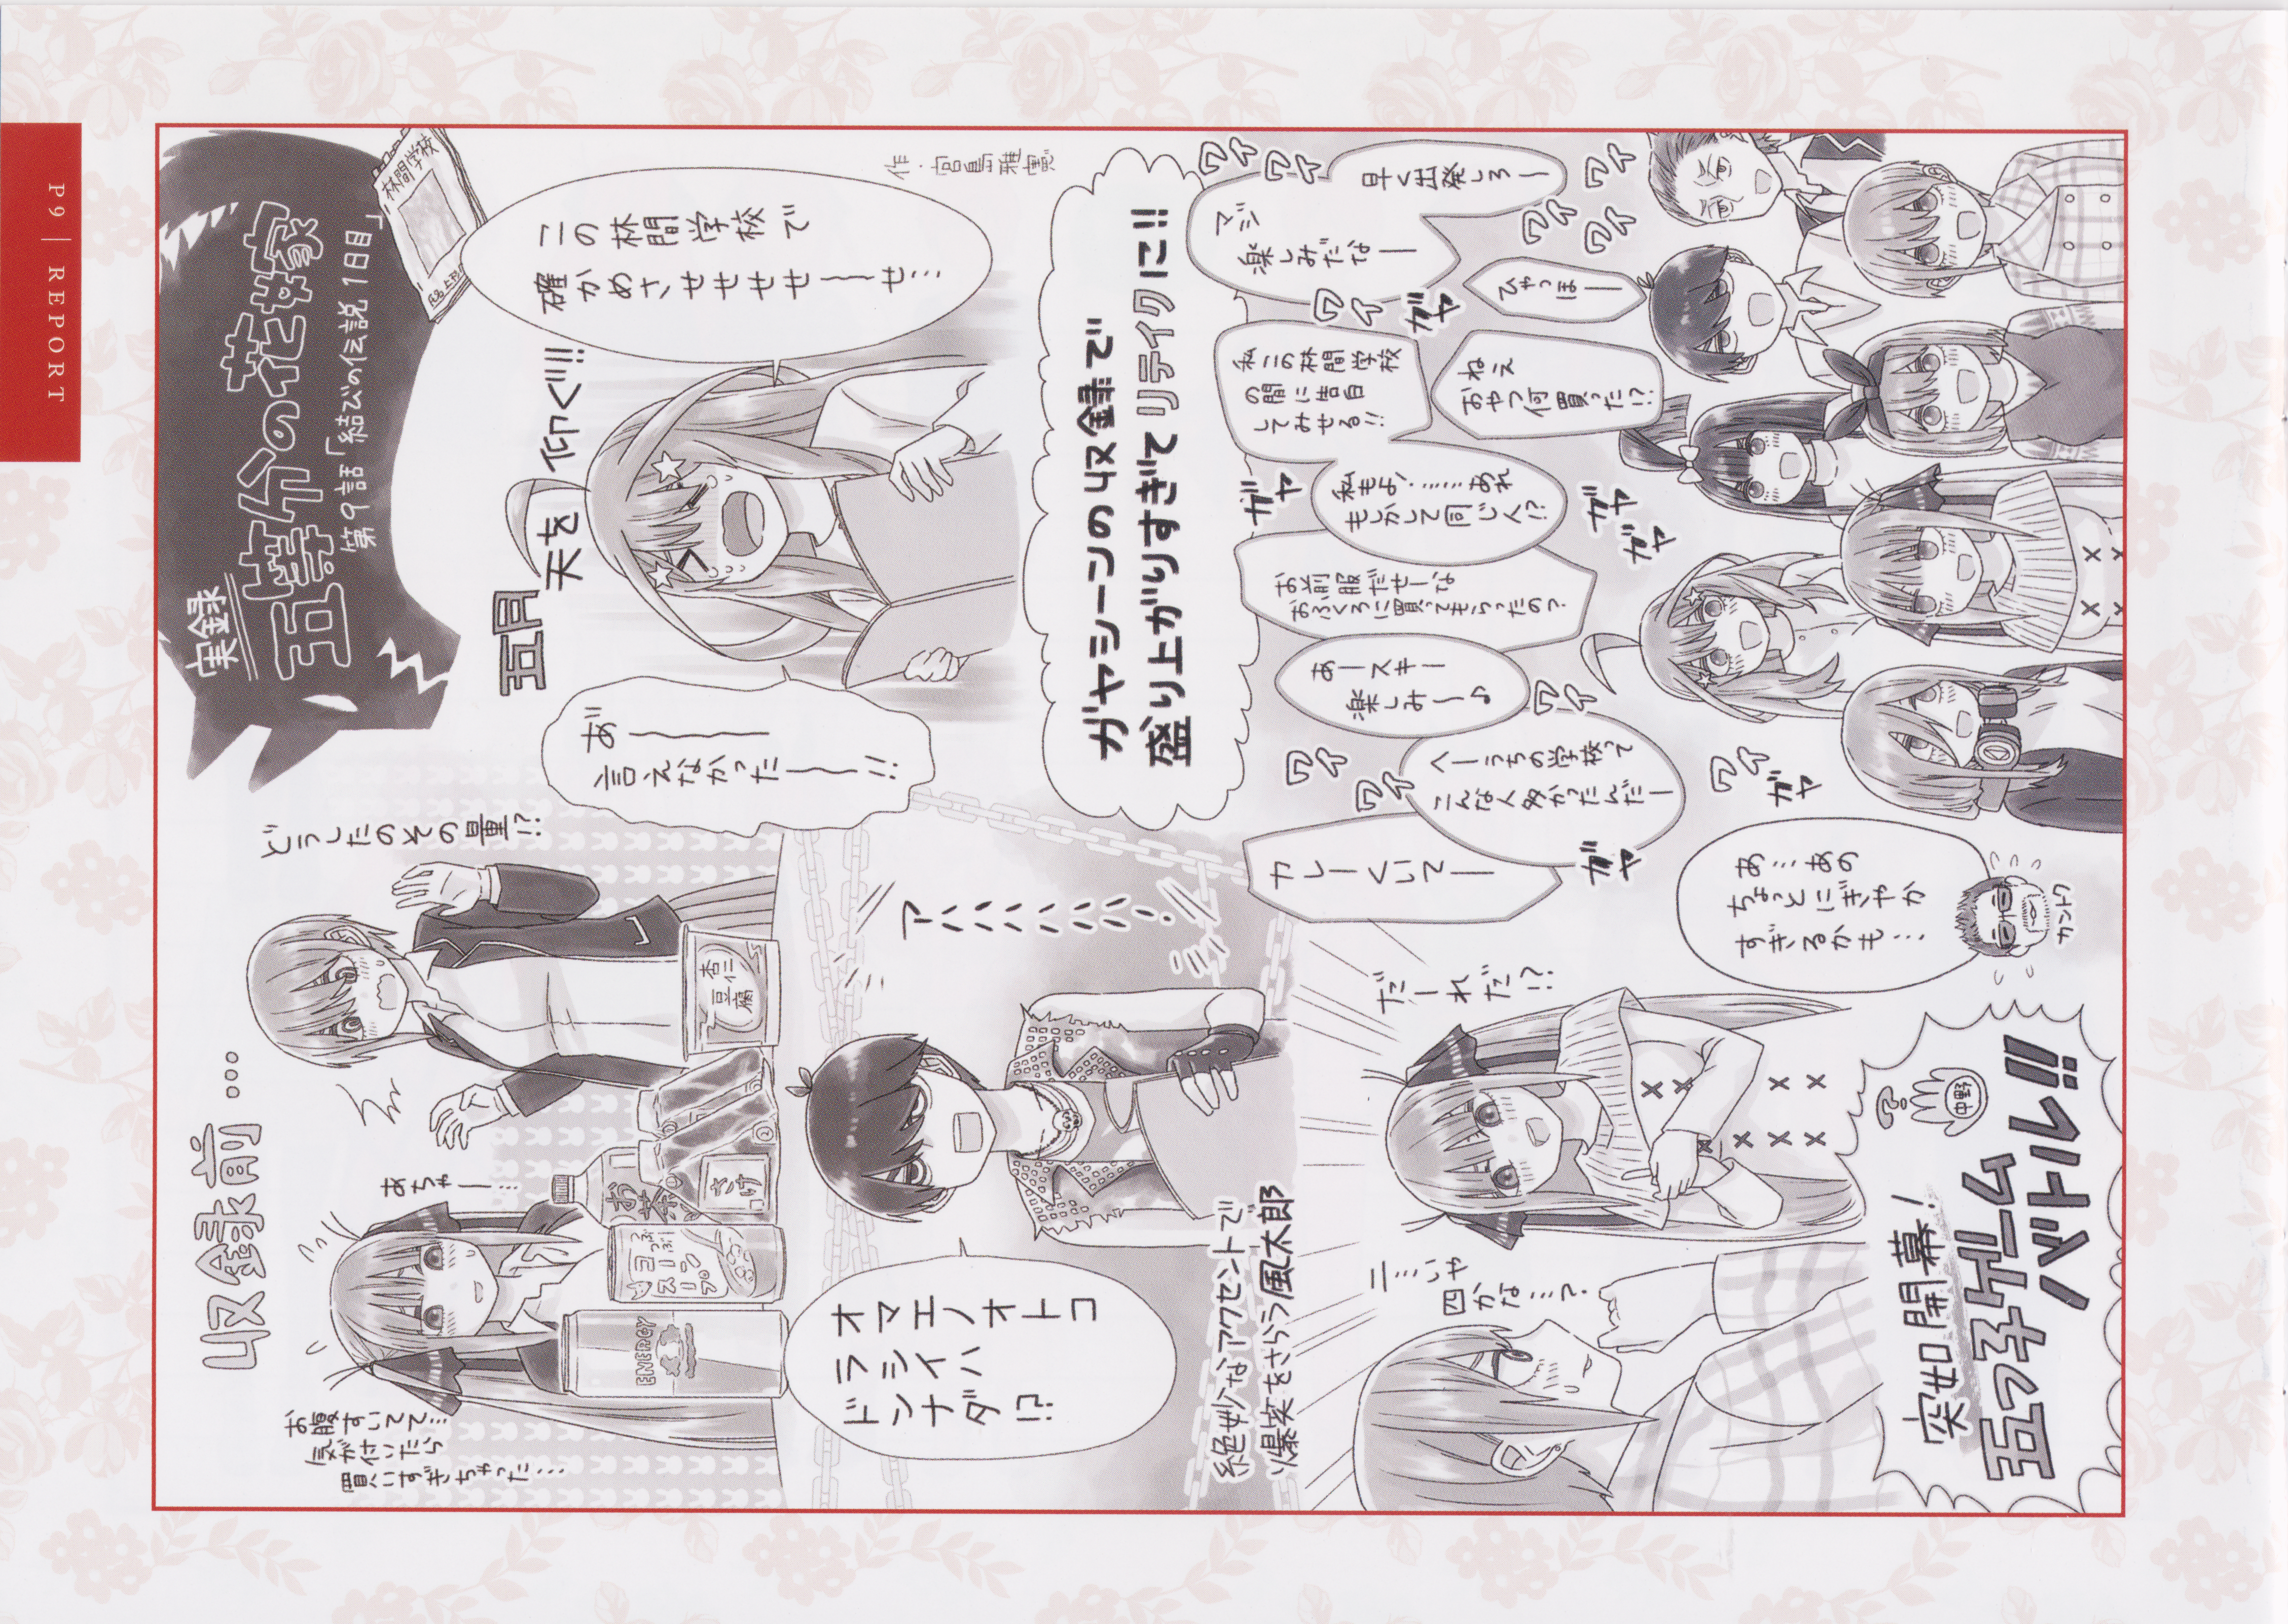 P9 | REPORT
実録
五等分の花嫁
第9話「結びの伝説 1日目」
林間学校
作・宮島雅憲
この林間学校で
確かめさせせせせ〜〜せ…
五月
天を
仰ぐ!!!
あ"〜〜〜
言えなかった〜〜!!
収録前…
どうしたのその量!?
あちゃー…
お腹すいてて…
気が付いたら
買いすぎちゃった…
杏仁
豆腐
さけ
お茶
コーン
つぶつぶ
スープ
ENERGY
アハハハハハハ!
オマエノオトコ
ラシイハ
ドンナダ!?
絶妙なアクセントで
爆笑をさらう風太郎
ガヤシーンの収録で
盛り上がりすぎてリテイクに!!
ワイ
ワイ
早く出発しろー
マジ
楽しみだなー
ワイ
ワイ
ワイ
ひゃっほー
ワイ
ガヤ
私この林間学校
の間に告白
してみせる!!
ねえ
おやつ何買った!?
ガヤ
私もよ!……あれ
もしかして同じ人!?
ガヤ
ガヤ
お前服だせーな
おふくろに買ってもらったの?
あースキー
楽しみー♪
ワイ
ワイ
ワイ
へーうちの学校って
こんな人多かったんだー
ワイ
ガヤ
カレーくいてー
ガヤ
あ…あの
ちょっとにぎやか
すぎるかも…
カントク
突如開幕!
五つ子ゲーム
バトル!!
中野
?
だーれだ!?
二…いや
四かな…?